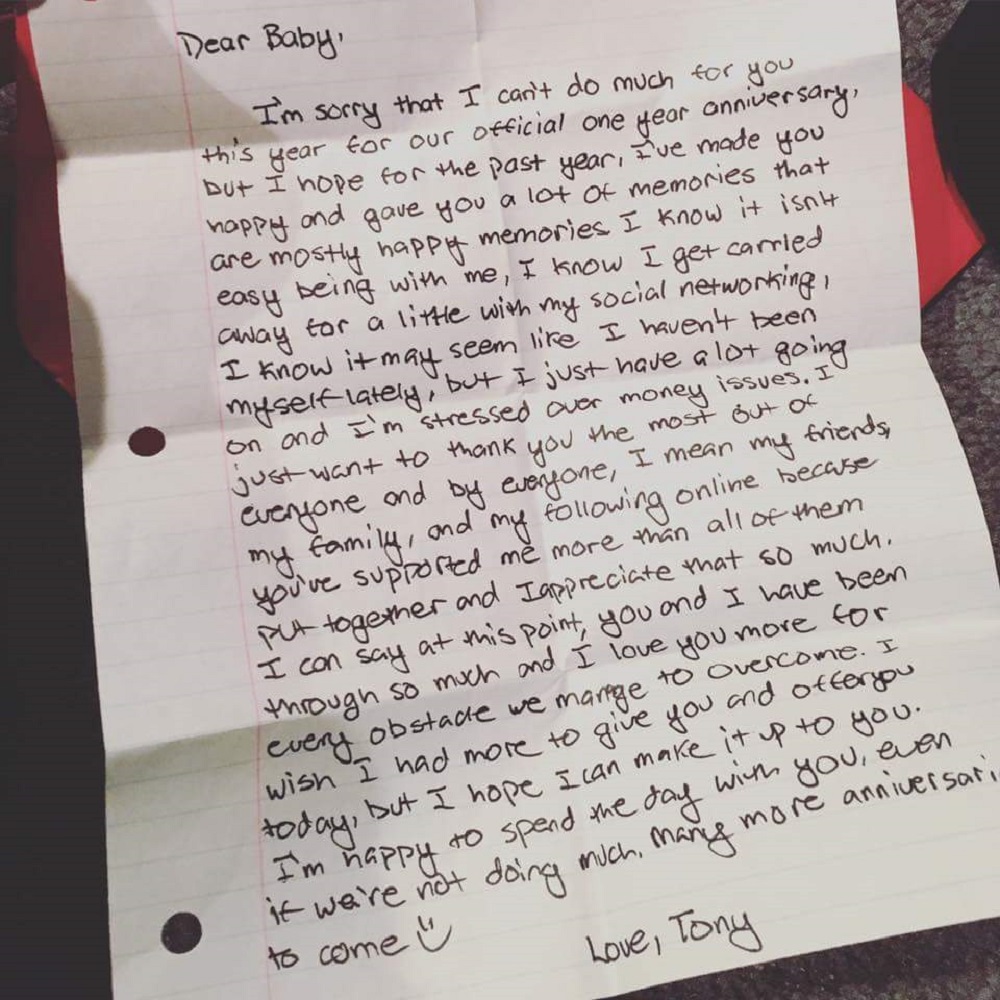 Dear Baby,
I'm sorry that I can't do much for you
this year for our official one year anniversary,
but I hope for the past year, I've made you
happy and gave you a lot of memories that
are mostly happy memories I know it isn't
easy being with me, I know I get carried
away for a little with my social networking,
I know it may seem like I haven't been
myself lately, but I just have a lot going
on and I'm stressed over money issues. I
just want to thank you the most out of
everyone and by everyone, I mean my friends,
my family, and my following online because
you've supported me more than all of them
put together and I appreciate that so much.
I can say at this point, you and I have been
through so much and I love you more for
every obstacle we manage to overcome. I
wish I had more to give you and offer you
today, but I hope I can make it up to you.
I'm happy to spend the day with you, even
if we're not doing much. Many more anniversari
to come
Love, Tony